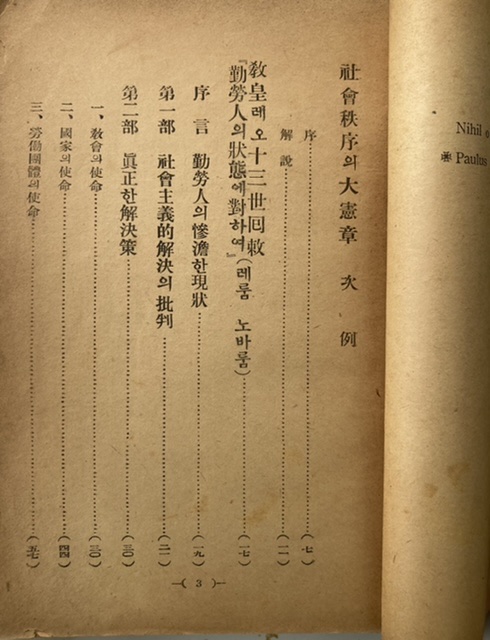 社會秩序의大憲章 次例
序………(七)
解說………(一一)
敎皇레오十三世回敕
『勤勞人의狀態에對하여』(레룸 노바룸)………(一七)
序言 勤勞人의慘澹한現狀………(一九)
第一部 社會主義的解決의批判………(二一)
第二部 眞正한解決策………(三〇)
一、敎會의使命………(三〇)
二、國家의使命………(四四)
三、勞働團體의使命………(五七)
—( 3 )—
Nihil
Paulus